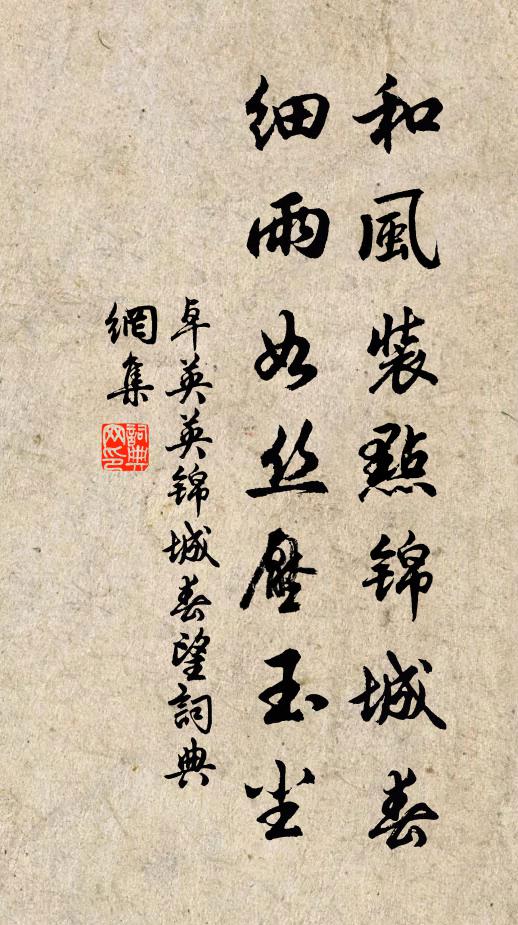 和風裝點锦城春
細雨如丝壓玉尘
卓英英锦城春望詞典
網集
詞典
网印